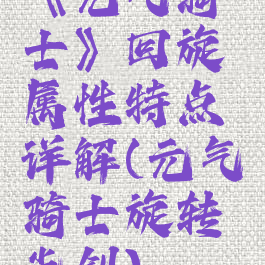 《元气骑
士》回旋
属性特点
详解(元气
骑士旋转